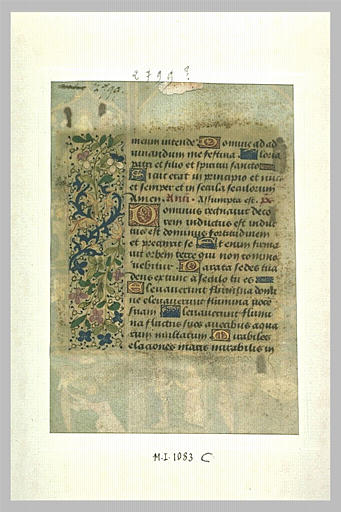 2799?
meum intende Domine ad ad
iuvandum me festina Gloria
patri et filio et spiritui sancto
Sicut erat in principio et nunc
et semper et in secula seculorum
Amen. Anti. Assumpta est. ps.
Dominus regnavit deco
rem indutus est indut
tus est dominus fortitudinem
et precinxit se Et enim firma
vit orbem terre qui non commo
vebitur Parata sedes tua
deus ex tunc a seculo tu es
Elevaverunt flumina domi
ne elevaverunt flumina voce
suam Elevaverunt flumi
na fluctus suos a vocibus aqua
rum multarum Mirabiles
elaciones maris mirabilis in
M.I. 1083 C